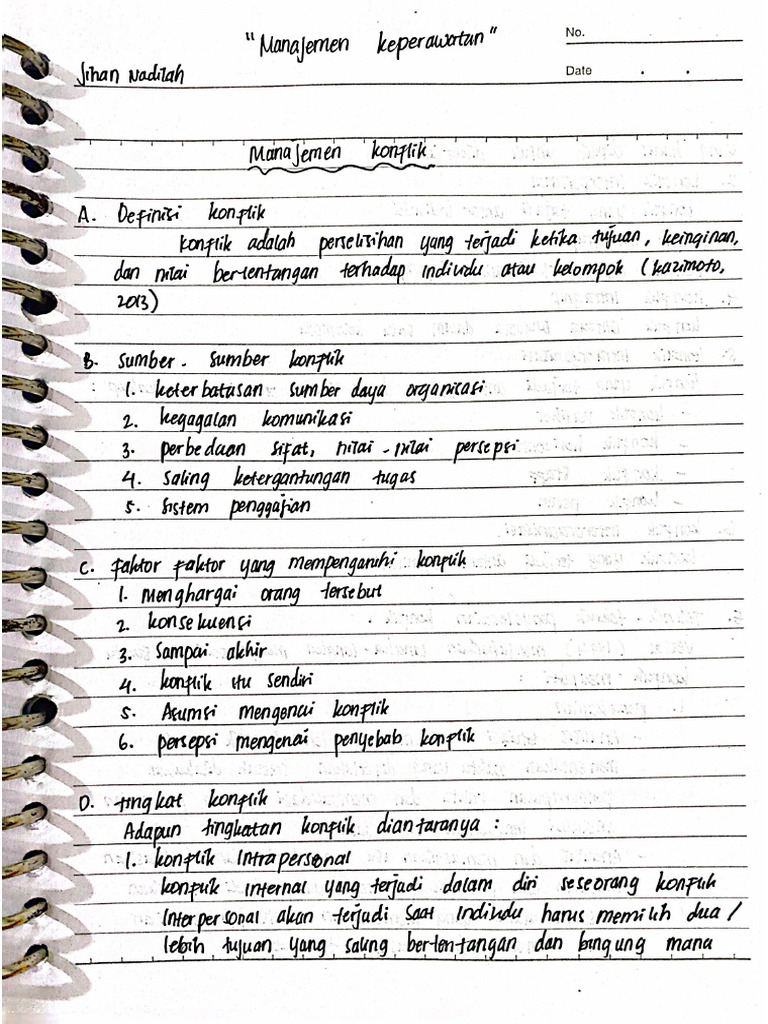 "Manajemen keperawatan"
No.
Jihan Nadilah
Date . .
Manajemen konflik
A. Definisi konflik
konflik adalah perselisihan yang terjadi ketika tujuan, keinginan,
dan nilai bertentangan terhadap individu atau kelompok (kazimoto,
2013)
B. Sumber - Sumber konflik
1. keterbatasan sumber daya organisasi
2. kegagalan komunikasi
3. perbedaan sifat, nilai - nilai persepsi
4. saling ketergantungan tugas
5. sistem penggajian
C. faktor faktor yang mempengaruhi konflik
1. menghargai orang tersebut
2. konsekuensi
3. sampai akhir
4. konflik itu sendiri
5. Asumsi mengenai konflik
6. persepsi mengenai penyebab konflik
D. tingkat konflik
Adapun tingkatan konflik diantaranya :
1. konflik Intrapersonal
konflik internal yang terjadi dalam diri seseorang konflik
Interpersonal akan terjadi saat individu harus memilih dua /
lebih tujuan yang saling bertentangan dan bingung mana